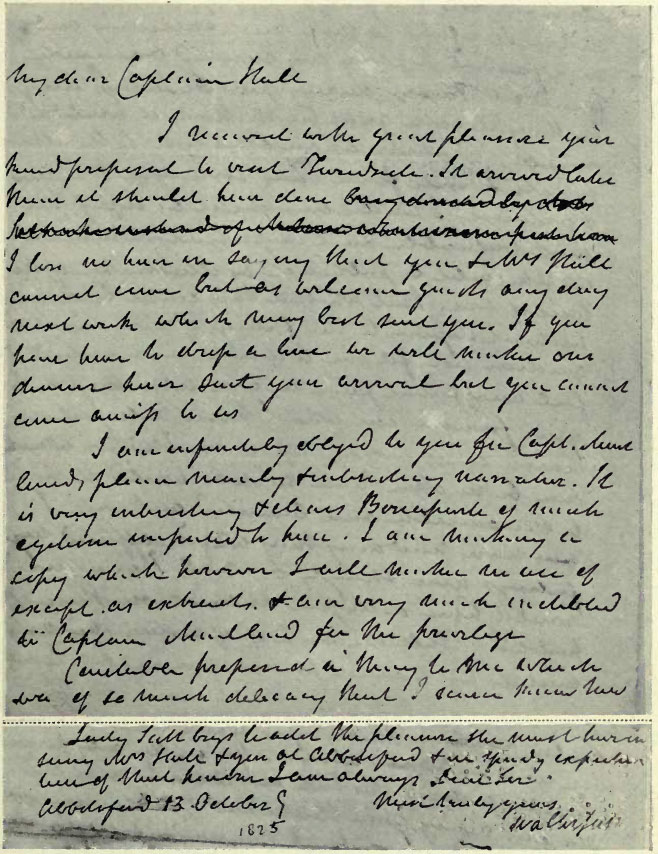 My dear Captain Hall
I received with great pleasure your
kind proposal to visit Tweedside. It arrived later
than it should have done being
I lose no time in saying that you & Mrs Hall
cannot come but as welcome guests any day
next week which may best suit you. If you
have time to drop a line we will make our
dinner hour suit your arrival but you cannot
come amiss to us
I am infinitely obliged to you for Capt. Mait
lands plain manly & interesting narrative. It
is very interesting & clears Bonaparte of much
egotism imputed to him. I am making a
copy which however I will make no use of
except as extracts & am very much indebted
to Captain Maitland for the privilege
Constable proposed a thing to me which
was of so much delicacy that I scarce know how
Lady Scott begs to add the pleasure she must have in
seeing Mrs Hall & you at Abbotsford & in speedy expecta
tion of that honour I am always dear Sir
Most truly yours
Abbotsford 13 October
1825
Walter Scott